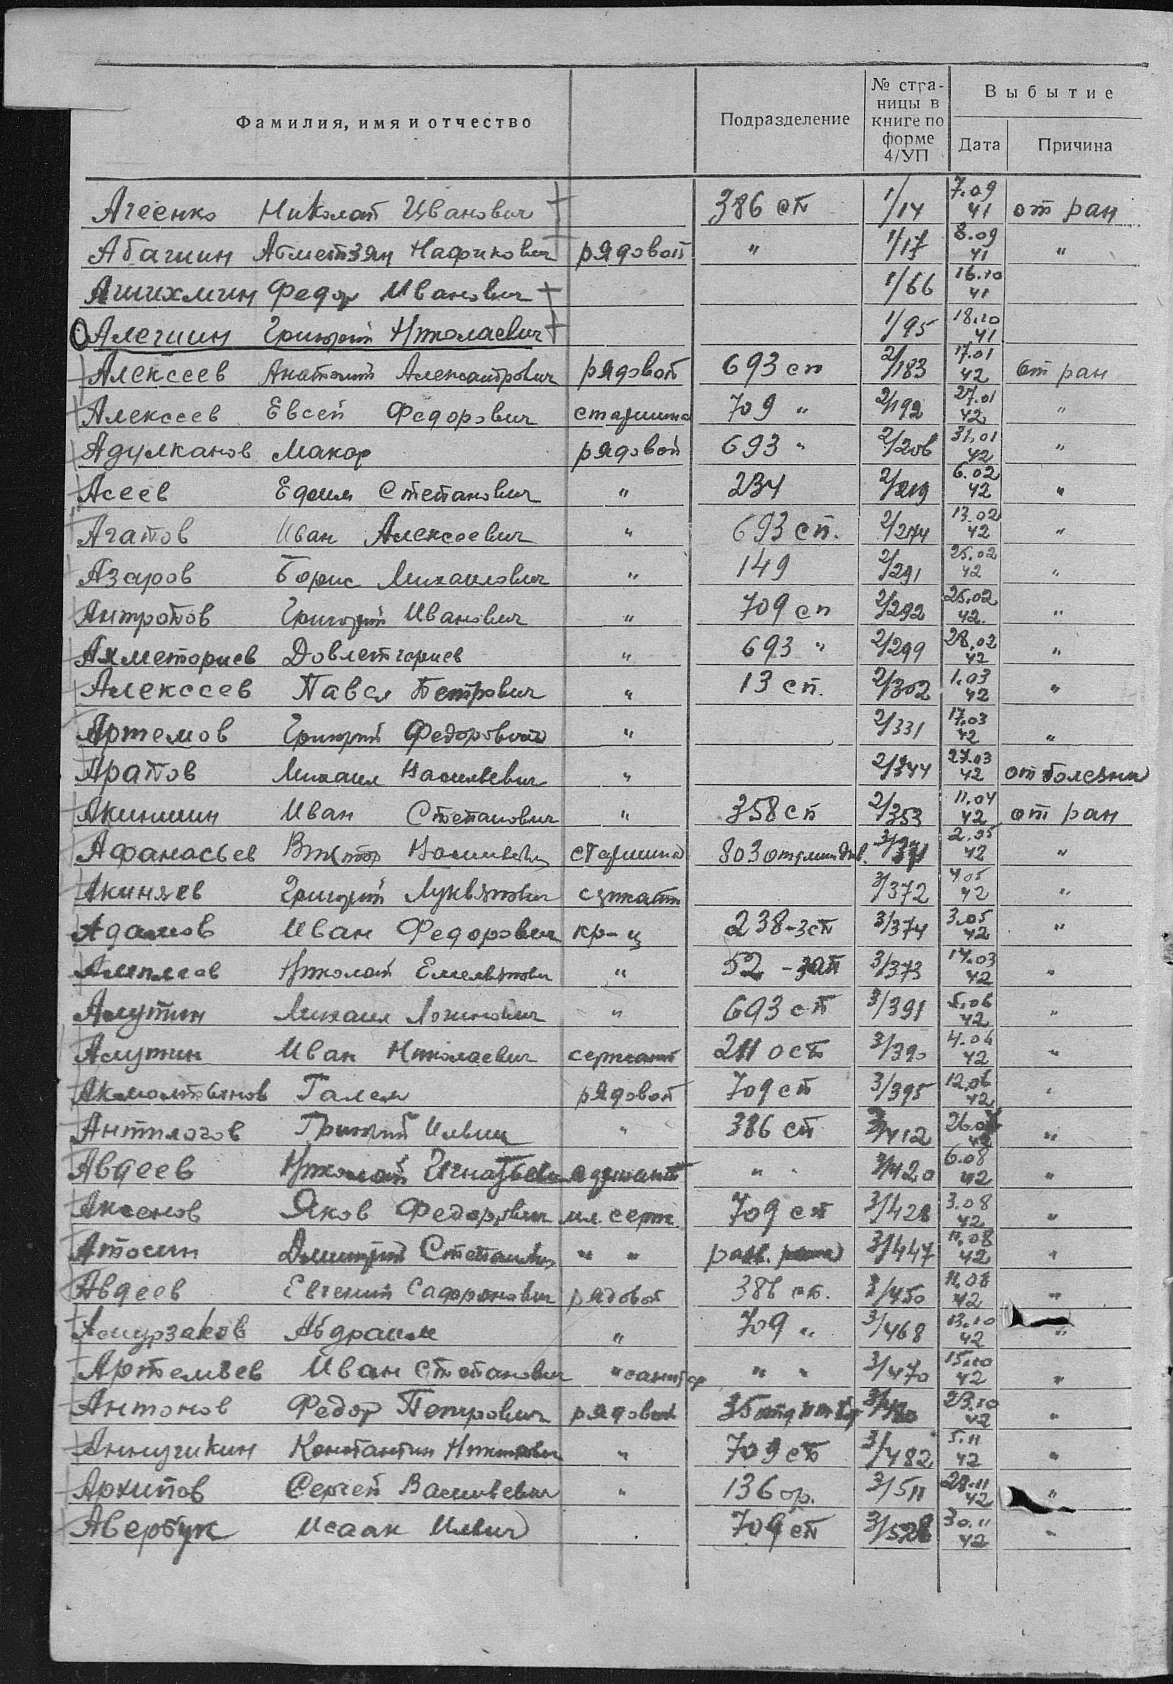 Фамилия, имя и отчество Подразделение № стра-ницы в книге по форме 4/УП Выбытие Дата Причина
Агеенко Николай Иванович 386 сп 1/14 7.09 41 от ран
Абагиин Ахметзян Нафикович рядовой " 1/17 8.09 41 "
Ашихмин Федор Иванович 1/66 16.10 41
Алегиин Григорий Николаевич 1/95 18.10 41
Алексеев Анатолий Александрович рядовой 693 сп 2/183 17.01 42 от ран
Алексеев Евсей Федорович старшина 709 " 2/192 27.01 42 "
Адулканов Макар рядовой 693 " 2/206 31.01 42 "
Асеев Ефим Степанович " 234 2/219 6.02 42 "
Агапов Иван Алексеевич " 693 сп. 2/274 13.02 42 "
Азаров Борис Михаилович " 149 2/291 25.02 42 "
Антропов Григорий Иванович " 709 сп 2/292 25.02 42 "
Ахметориев Довлетгориев " 693 " 2/299 28.02 42 "
Алексеев Павел Петрович " 13 сп. 2/302 1.03 42 "
Артемов Григорий Федорович " 2/331 17.03 42 "
Арапов Михаил Васильевич " 2/344 27.03 42 от болезни
Акиншин Иван Степанович " 358 сп 2/353 11.04 42 от ран
Афанасьев Виктор Васильевич старшина 803 3/371 2.05 42 "
Акиняев Григорий Лукьянович сержант 3/372 4.05 42 "
Адамов Иван Федорович кр-ц 238-зсп 3/374 3.05 42 "
Николай Емельянович " 52 - зап 3/373 14.03 42 "
Алутин Михаил Логинович " 693 сп 3/391 5.06 42 "
Асутин Иван Николаевич сержант 211 осб 3/390 4.06 42 "
Акмолтьянов Галем рядовой 709 сп 3/395 12.06 42 "
Антилогов Григорий Ильич " 386 сп 3/412 26.07 42 "
Авдеев Николай Игнатьевич сержант " " 3/420 6.08 42 "
Аксенов Яков Федорович мл. серж 709 сп 3/428 3.08 42 "
Атосин Дмитрий Степанович " " разв. рота 3/447 11.08 42 "
Авдеев Евгений Сафронович рядовой 386 сп. 3/450 11.08 42 "
Амурзаков Абдраим " 709 " 3/468 13.10 42 "
Артемьев Иван Степанович " санитар " " 3/470 15.10 42 "
Антонов Федор Петрович рядовой 35 3/480 23.10 42 "
Аннучикин Константин " 709 сп 3/482 5.11 42 "
Архипов Сергей Васильевич " 136 ор. 3/511 28.11 42 "
Авербук Исаак Илич 709 сп 3/528 30.11 42 "